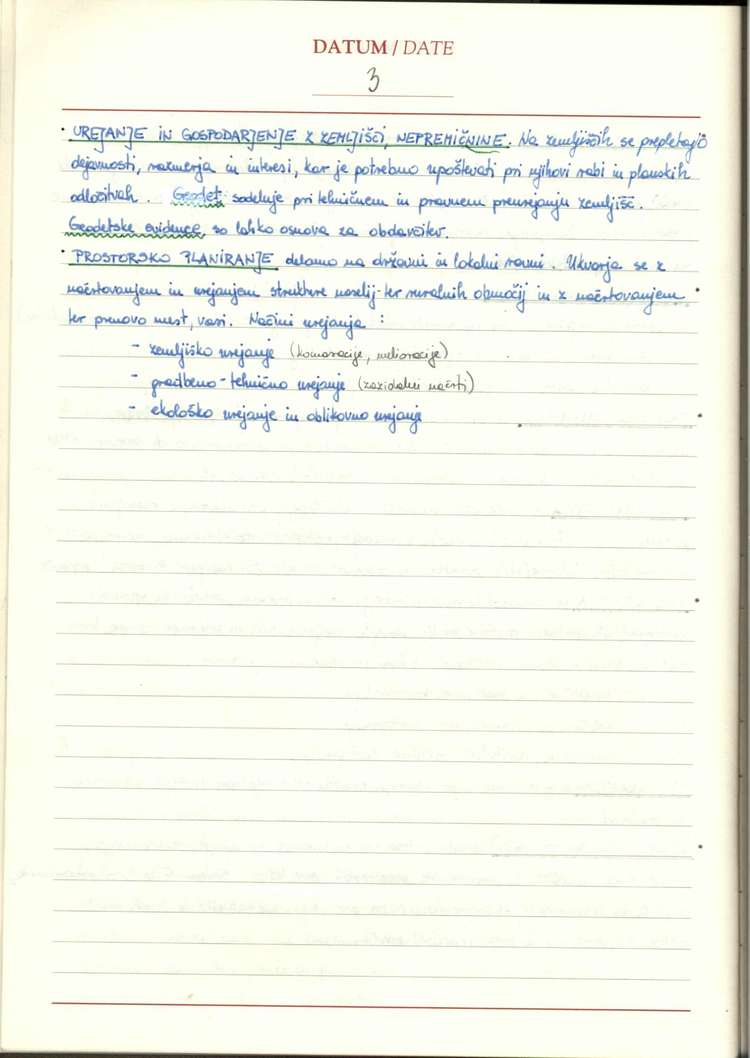 DATUM / DATE
3
• UREJANJE IN GOSPODARJENJE Z ZEMLJIŠČI, NEPREMIČNINE. Na zemljiščih se prepletajo
dejavnosti, razmerja in interesi, kar je potrebno upoštevati pri njihovi rabi in planskih
odločitvah. Geodet sodeluje pri tehničnem in pravnem preurejanju zemljišč.
Geodetske evidence so lahko osnova za obdavčitev.
• PROSTORSKO PLANIRANJE delamo na državni in lokalni ravni. Ukvarja se z
načrtovanjem in urejanjem strukture naselij ter ruralnih območij in z načrtovanjem
ter prenovo mest, vasi. Načini urejanja:
- zemljiško urejanje (komasacije, melioracije)
- gradbeno-tehnično urejanje (zazidalni načrti)
- ekološko urejanje in oblikovno urejanje